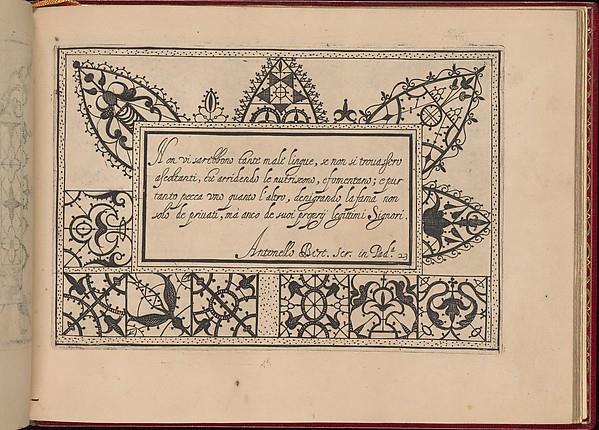 Non vi sarebbono tante male lingue, se non si trouassero
ascoltanti, che arridendo le nutriscono, e fomentano; e pur
tanto pecca uno quanto l'altro, denigrando la fama non
solo de priuati, ma anco de suoi proprij legittimi Signori.
Antonello Bert. scr. in Pad.ᵃ 23